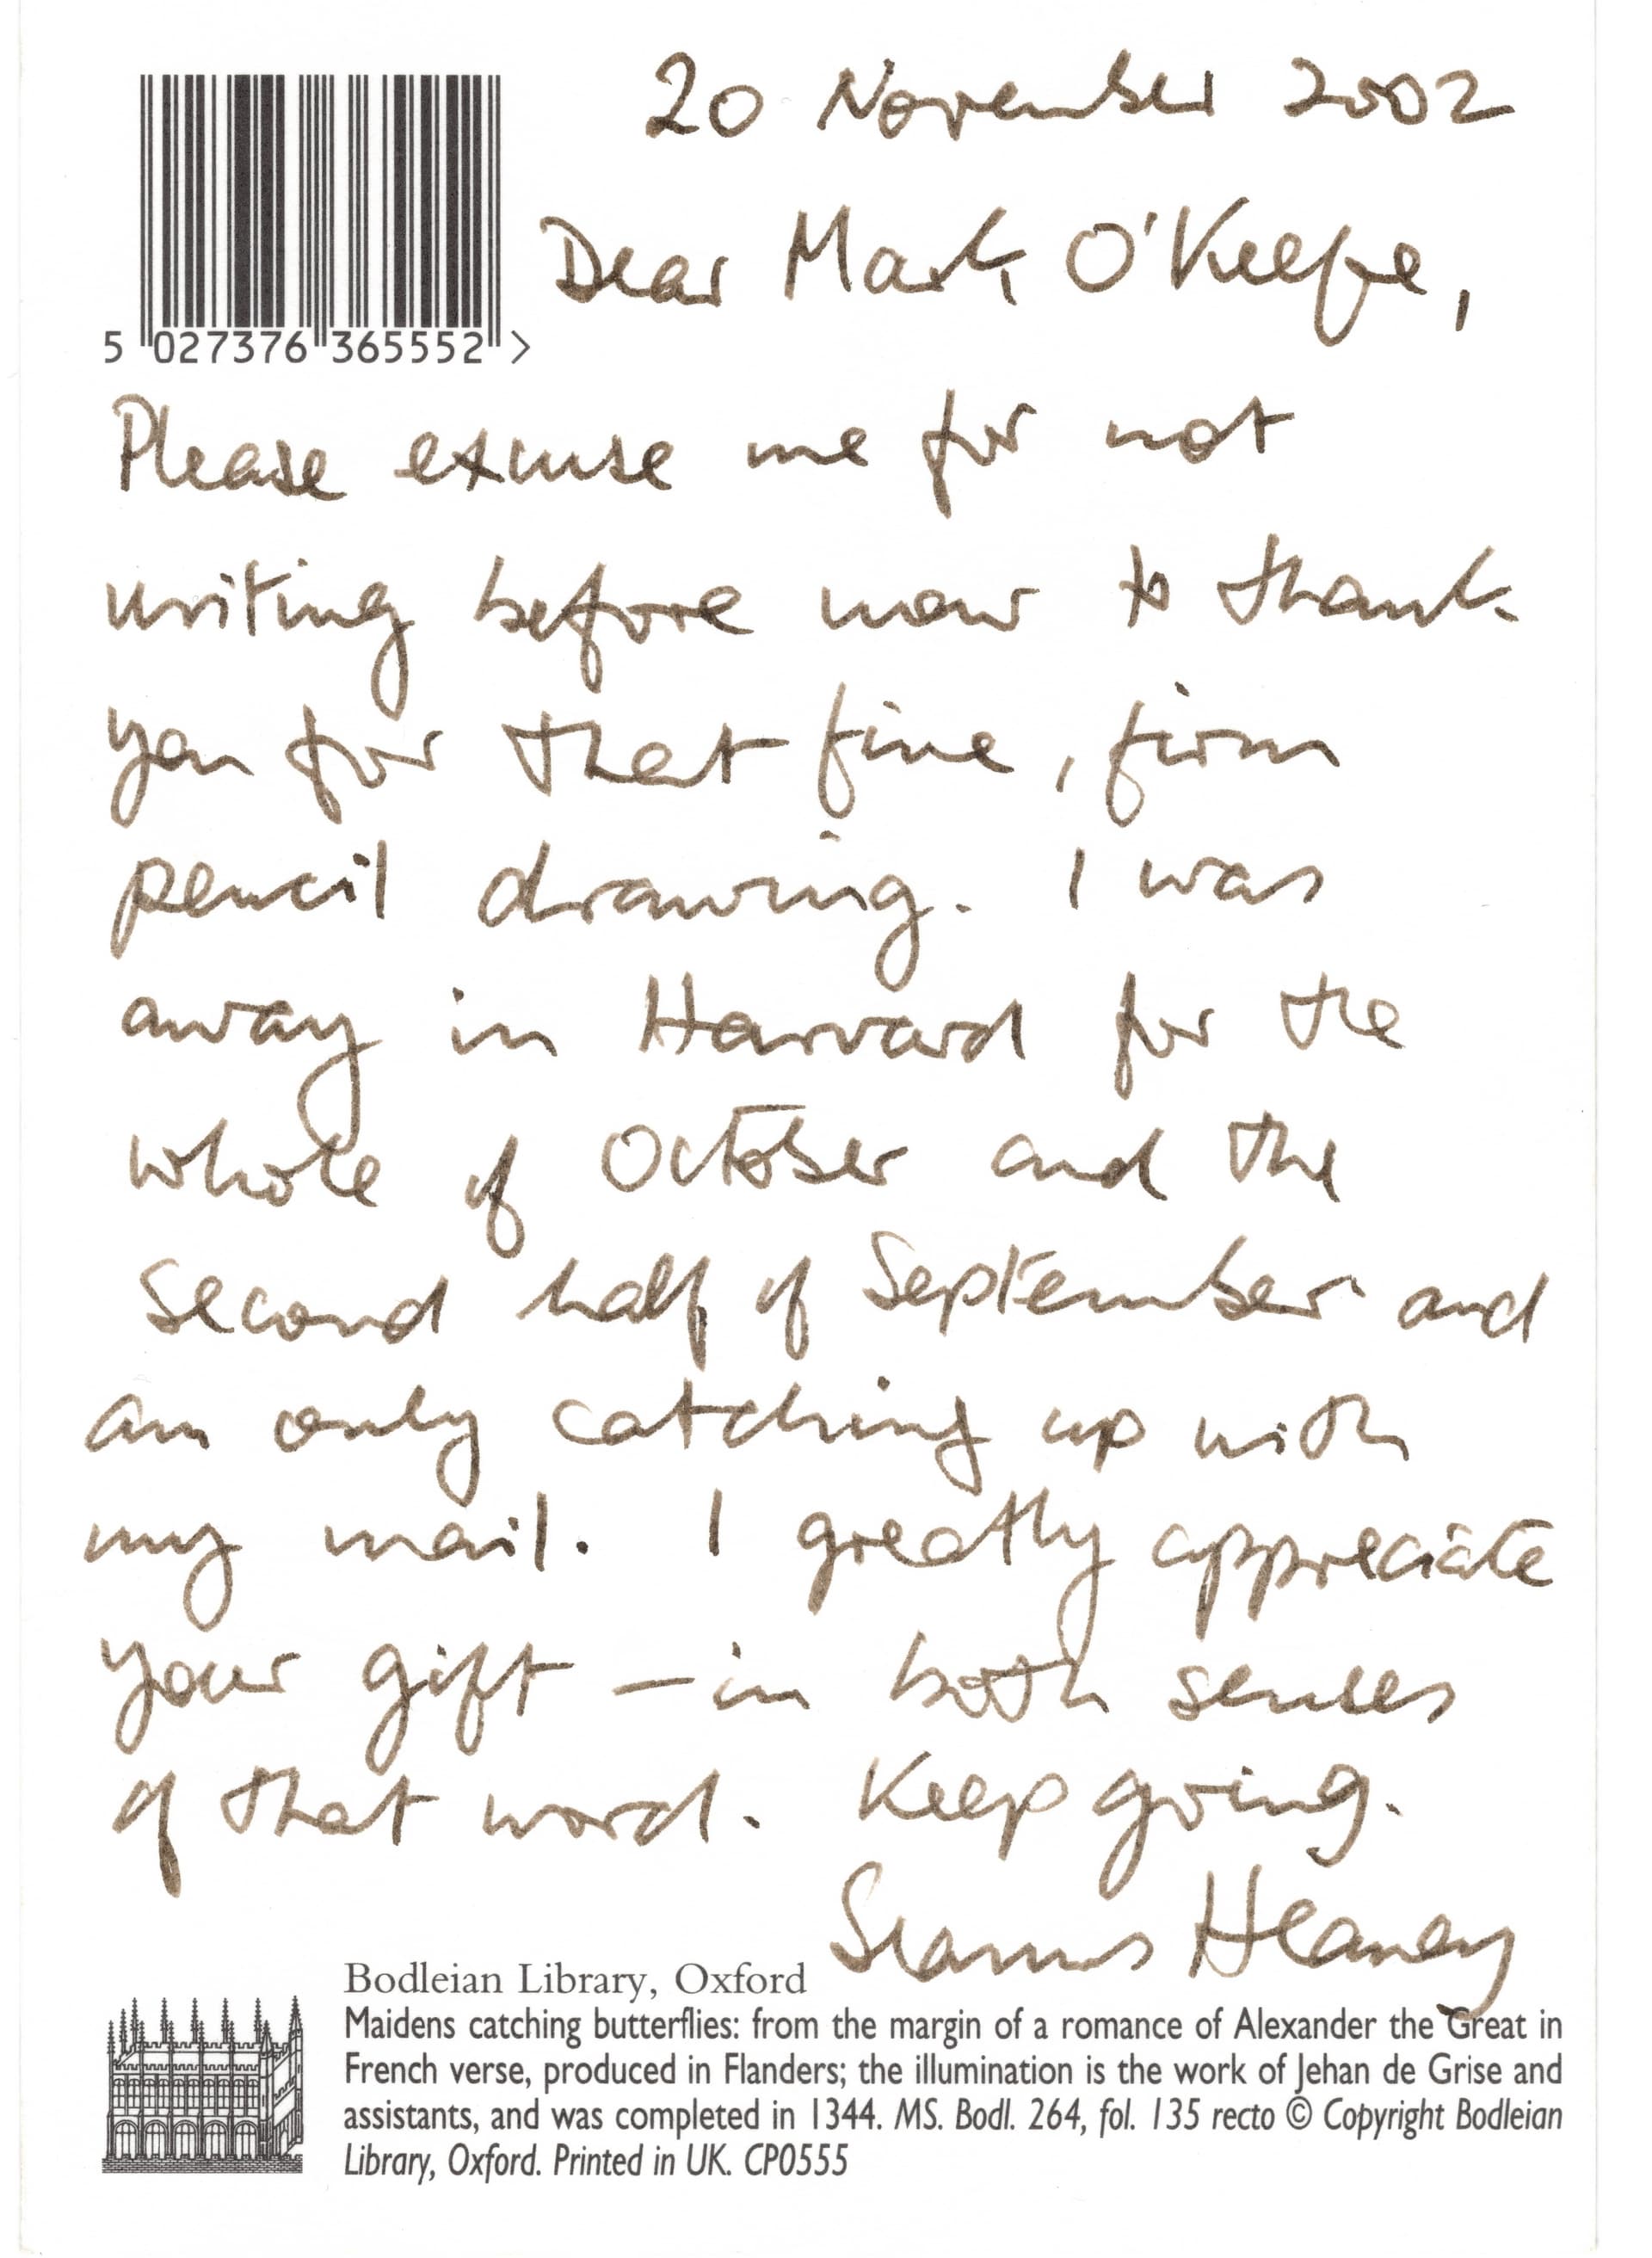 20 November 2002
Dear Mark O'Keefe,
5 027376 365552 >
Please excuse me for not
writing before now to thank
you for that fine, firm
pencil drawing. I was
away in Harvard for the
whole of October and the
second half of September and
am only catching up with
my mail. I greatly appreciate
your gift – in both senses
of that word. Keep going.
Seamus Heaney
Bodleian Library, Oxford
Maidens catching butterflies: from the margin of a romance of Alexander the Great in
French verse, produced in Flanders; the illumination is the work of Jehan de Grise and
assistants, and was completed in 1344. MS. Bodl. 264, fol. 135 recto © Copyright Bodleian
Library, Oxford. Printed in UK. CP0555